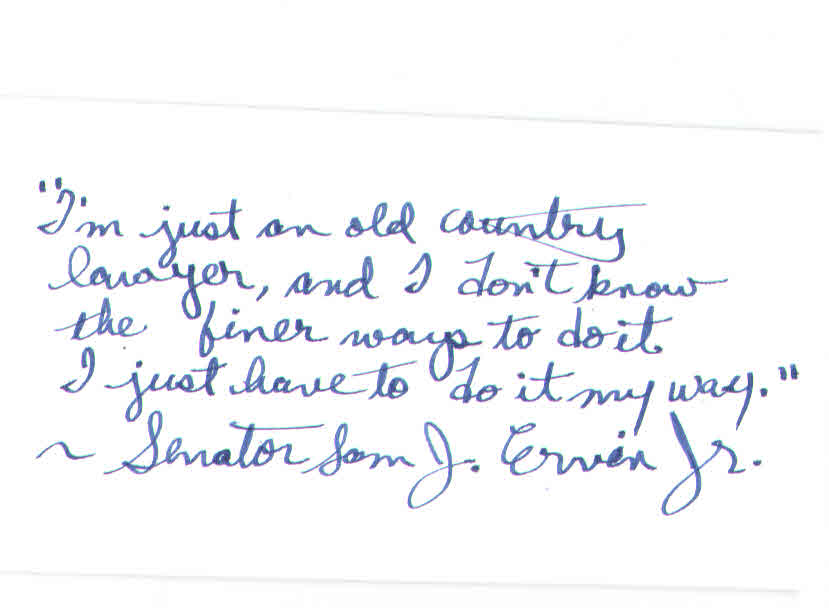 "I'm just an old country
lawyer, and I don't know
the finer ways to do it.
I just have to do it my way."
~ Senator Sam J. Ervin Jr.